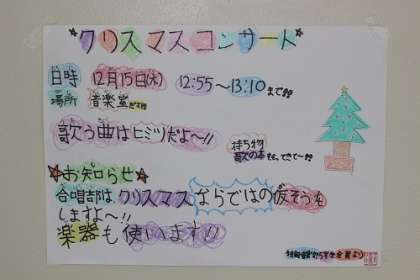 *クリスマスコンサート*
日時 12月15日(木) 12:55〜13:10まで!!
場所 音楽室だよ!!
歌う曲はヒミツだよ〜!!
持ち物
歌の本もってきて〜!!
☆お知らせ☆
合唱部は、クリスマスならではの仮そうを
しますよ〜!!
楽器も使います!!
5年生全員より